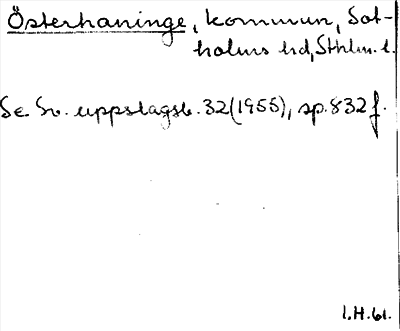 Österhaninge, kommun, Sot-
holms hd, Sthlm. l.
Se Sv. uppslagsb. 32(1955), sp. 832 f.
1.H.61.